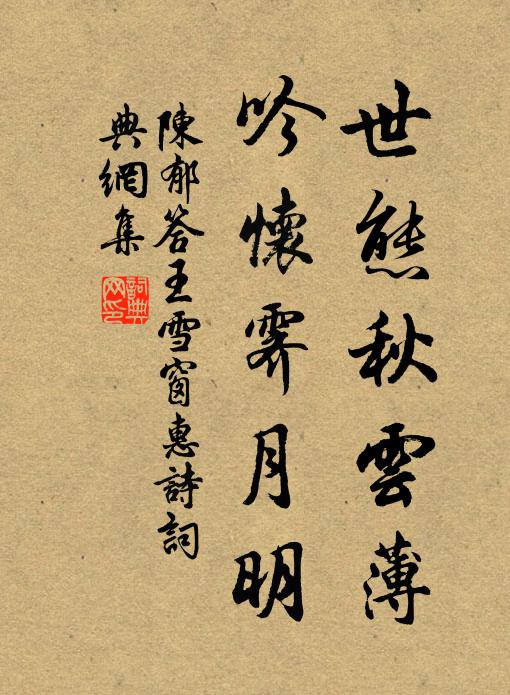 世態秋雲薄
吟懷霽月明
陳郁答王雪窗惠詩詞
典網集
詞典網印